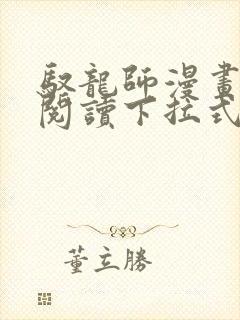 馭龍師漫畫
閱讀下拉式
董立勝